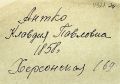 Антко
Клавдия Павловна
1858 г.
Херсонская 69